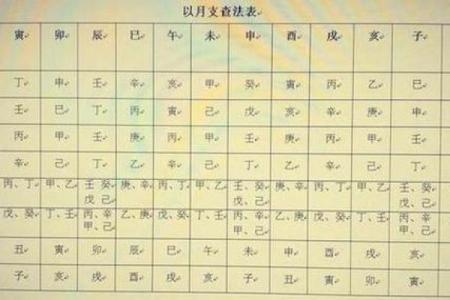 以月支查法表
寅 卯 辰 巳 午 未 申 酉 戌 亥 子
丁 申 壬 辛 亥 甲 癸 寅 丙 乙 巳
壬 巳 丁 丙 寅 己 戊 亥 辛 庚 申
丙 甲 壬 庚 丙 甲 壬 庚 丙 甲 壬
辛 己 丁 乙 辛 己 丁 乙 辛 己 丁
丙、丁 甲、乙 壬、癸 庚、辛 丙、丁 甲、乙 壬、癸 庚、辛 丙、丁 甲、乙 壬、癸
戊 己 戊、己 戊、己
戊、癸 丁、壬 丙、辛 乙、庚 戊、癸 丁、壬 丙、辛 乙、庚 戊、癸 丁、壬 丙、辛
甲、己 甲、己 甲、己
丑 寅 卯 辰 巳 午 未 申 酉 戌 亥
子 亥 戌 酉 戌 亥 子 丑 寅 卯